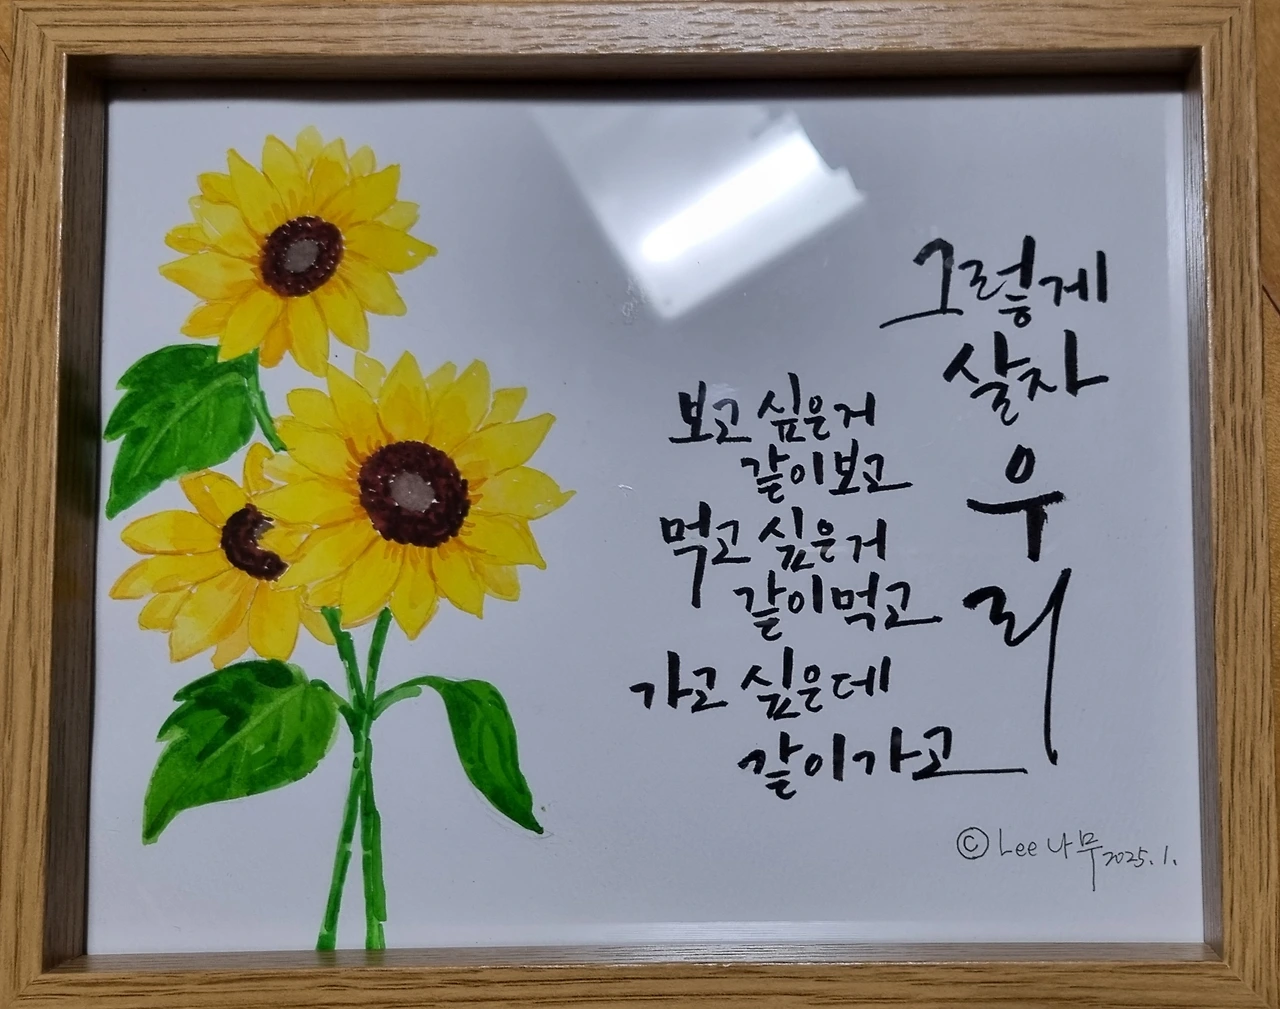 보고 싶은거
같이보고
먹고 싶은거
같이먹고
가고 싶은데
같이가고
그렇게
살자
우
리
© Lee 나무 2025. 1.